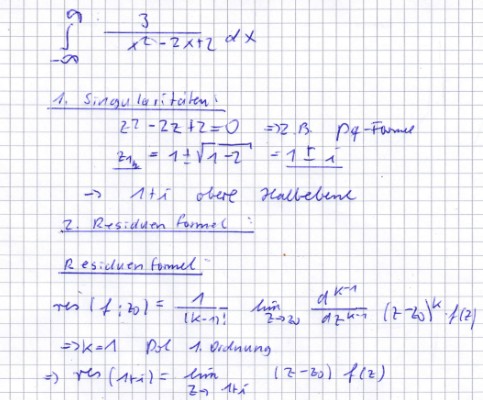 ∫_{-∞}^{∞} 3/(x² - 2x + 2) dx
1. Singularitäten:
z² - 2z + 2 = 0 => z.B. pq-Formel
z_{1/2} = 1 ± √(1-2) = 1 ± i
-> 1+i obere Halbebene
2. Residuenformel:
Residuenformel:
res(f; z₀) = 1/(k-1)! lim_{z→z₀} d^{k-1}/dz^{k-1} (z-z₀)^k · f(z)
=> k=1 Pol 1. Ordnung
=> res(1+i) = lim_{z→1+i} (z-z₀) f(z)